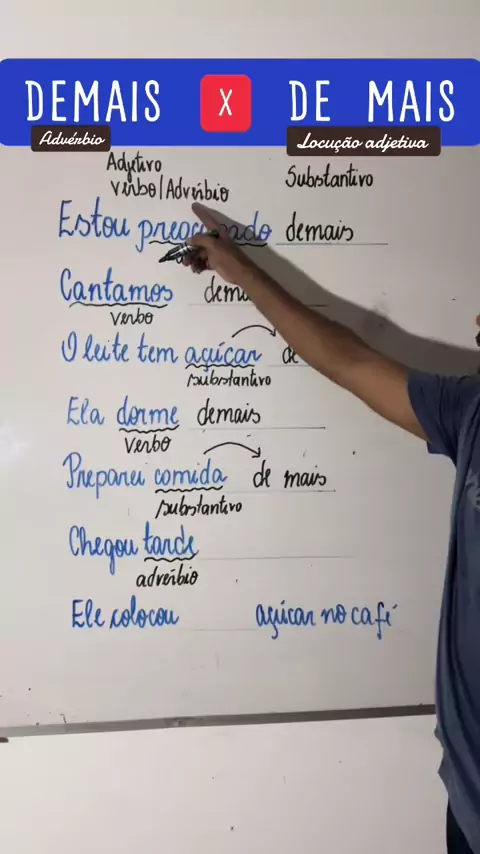 DEMAIS X DE MAIS
Advérbio Locução adjetiva
Adjetivo
verbo/Advérbio Substantivo
Estou demais
Cantamos
verbo
O leite tem açúcar de
substantivo
Ela dorme demais
verbo
Preparei comida de mais
substantivo
Chegou tarde
advérbio
Ele colocou açúcar no café